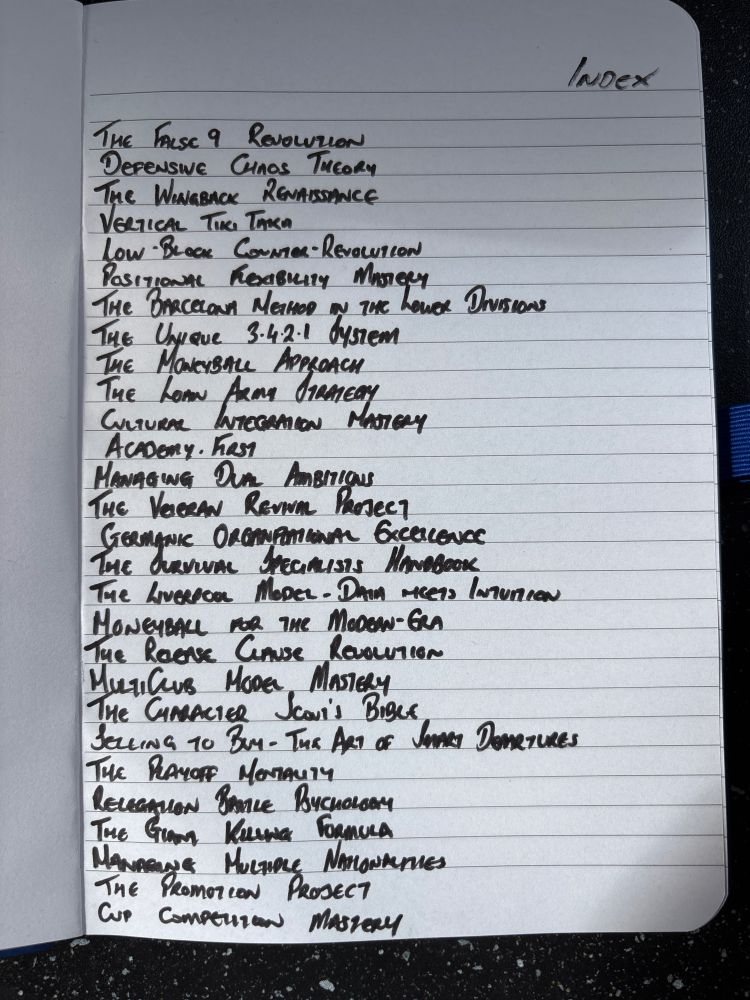 INDEX
THE FALSE 9 REVOLUTION
DEFENSIVE CHAOS THEORY
THE WINGBACK RENAISSANCE
VERTICAL TIKI TAKA
LOW-BLOCK COUNTER-REVOLUTION
POSITIONAL FLEXIBILITY MASTERY
THE BARCELONA METHOD IN THE LOWER DIVISIONS
THE UNIQUE 3.4.2.1 SYSTEM
THE MONEYBALL APPROACH
THE LOAN ARMY STRATEGY
CULTURAL INTEGRATION MASTERY
ACADEMY-FIRST
MANAGING DUAL AMBITIONS
THE VETERAN REVIVAL PROJECT
GERMANIC ORGANISATIONAL EXCELLENCE
THE SURVIVAL SPECIALISTS HANDBOOK
THE LIVERPOOL MODEL - DATA MEETS INTUITION
MONEYBALL FOR THE MODERN-ERA
THE RELEASE CLAUSE REVOLUTION
MULTICLUB MODEL MASTERY
THE CHARACTER SCOUT'S BIBLE
SELLING TO BUY - THE ART OF SMART DEPARTURES
THE PLAYOFF MENTALITY
RELEGATION BATTLE PSYCHOLOGY
THE GIANT KILLING FORMULA
MANAGING MULTIPLE NATIONALITIES
THE PROMOTION PROJECT
CUP COMPETITION MASTERY